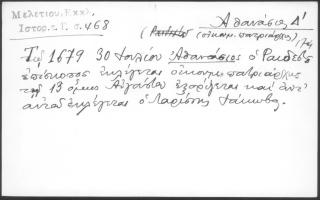 Μελετίου, Εκκλ.
Ιστορ. τ. Γ. σ. 468
Ἀθανάσιος Δ'
(οἰκουμ. πατριάρχης)
Τῷ 1679 30 Ἰουλίου Ἀθανάσιος ὁ Ραιδεστοῦ
ἐπίσκοπος ἐκλέγεται οἰκουμ. πατριάρχης
τῇ 13 ὅμως Αὐγούστου ἐξορίζεται καὶ ἀντ'
αὐτοῦ ἐκλέγεται ὁ Λαρίσσης Ἰάκωβος.